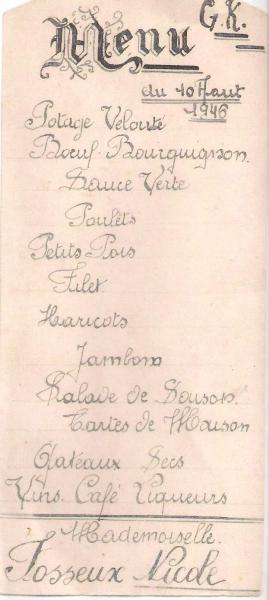 G.K.
Menu
du 10 Aout
1946
Potage Velouté
Bœuf Bourguignon
Sauce Verte
Poulets
Petits Pois
Filet
Haricots
Jambon
Salade de Souson
Tartes de Maison
Gateaux Secs
Vins Café Liqueurs
Mademoiselle
Fosseux Nicole